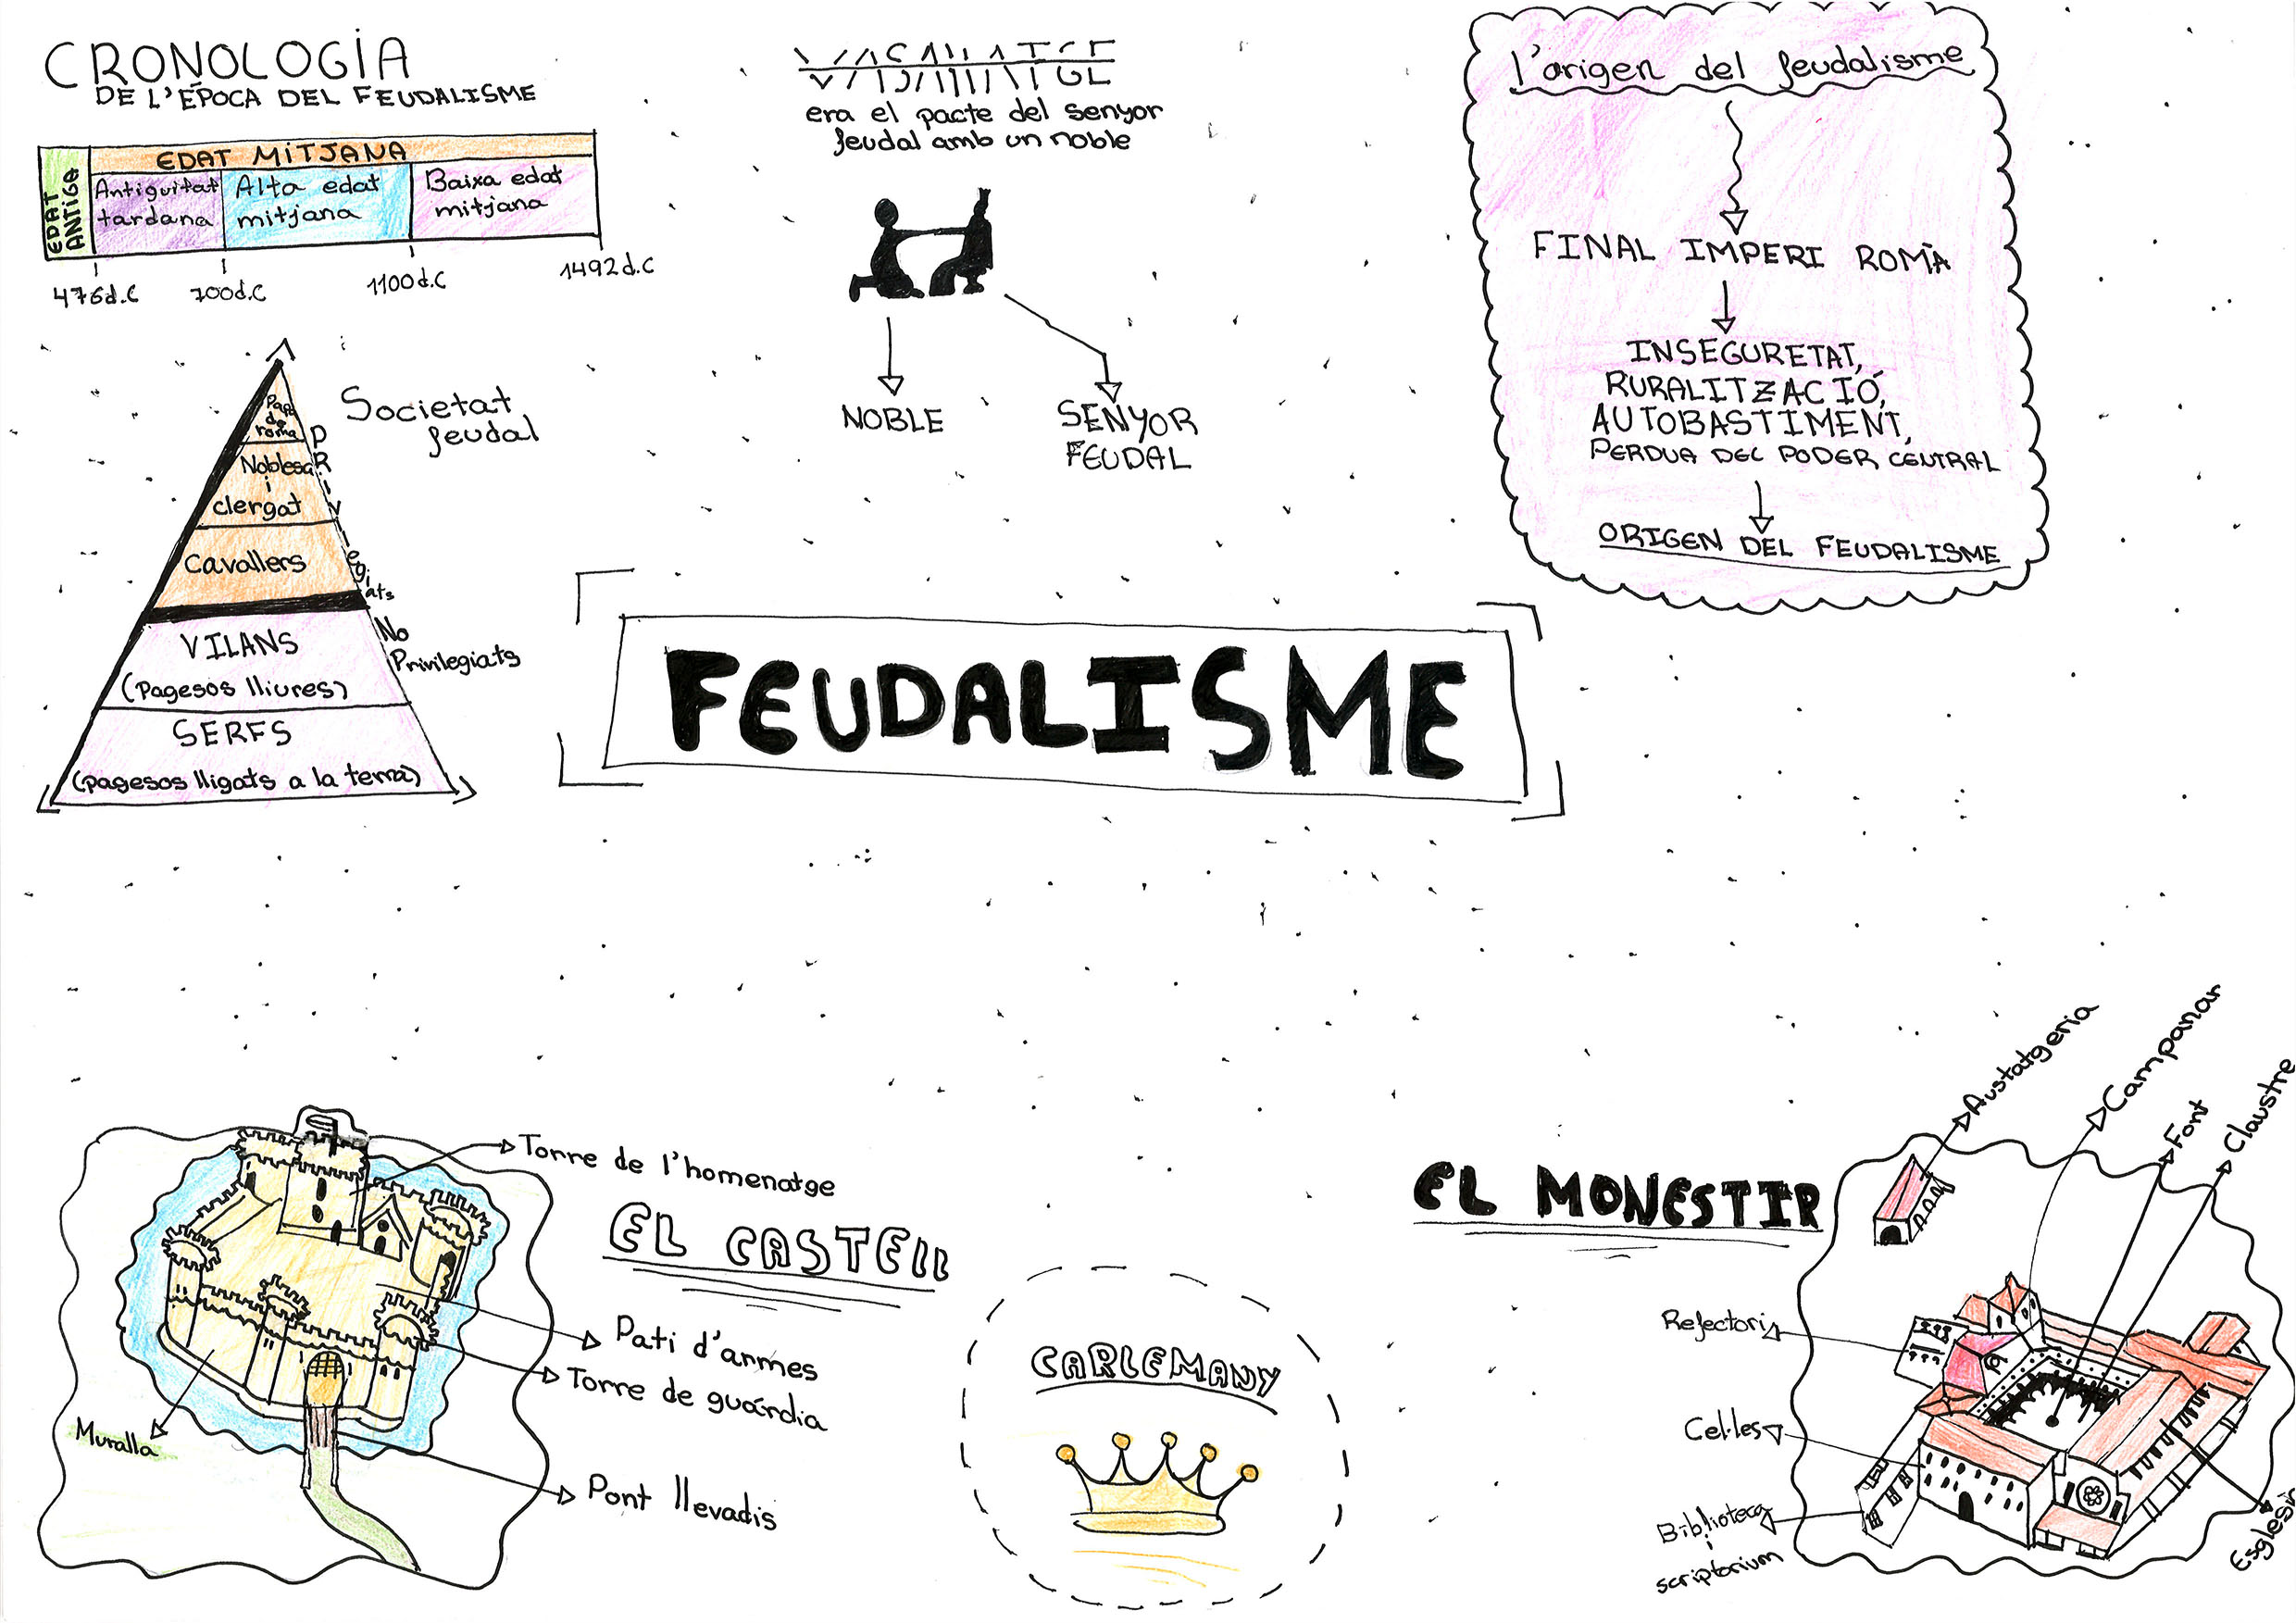 CRONOLOGIA
DE L'ÈPOCA DEL FEUDALISME
EDAT ANTIGA
EDAT MITJANA
Antiguitat
tardana
Alta edat
mitjana
Baixa edat
mitjana
476d.C
700d.C
1100d.C
1492d.C
VASALLATGE
era el pacte del senyor
feudal amb un noble
NOBLE
SENYOR
FEUDAL
l'origen del feudalisme
FINAL IMPERI ROMÀ
INSEGURETAT,
RURALITZACIÓ,
AUTOBASTIMENT,
PERDUA DEL PODER CENTRAL
ORIGEN DEL FEUDALISME
Societat
feudal
Papa
de
roma
Noblesa
i
clergat
Cavallers
PRivilegiats
VILANS
(Pagesos lliures)
SERFS
(pagesos lligats a la terra)
No
Privilegiats
FEUDALISME
EL CASTELL
Torre de l'homenatge
Pati d'armes
Torre de guàrdia
Muralla
Pont llevadis
CARLEMANY
EL MONESTIR
Austatgeria
Campanar
Font
Claustre
Refectori
Cel·les
Biblioteca
i
scriptorium
Esglesia